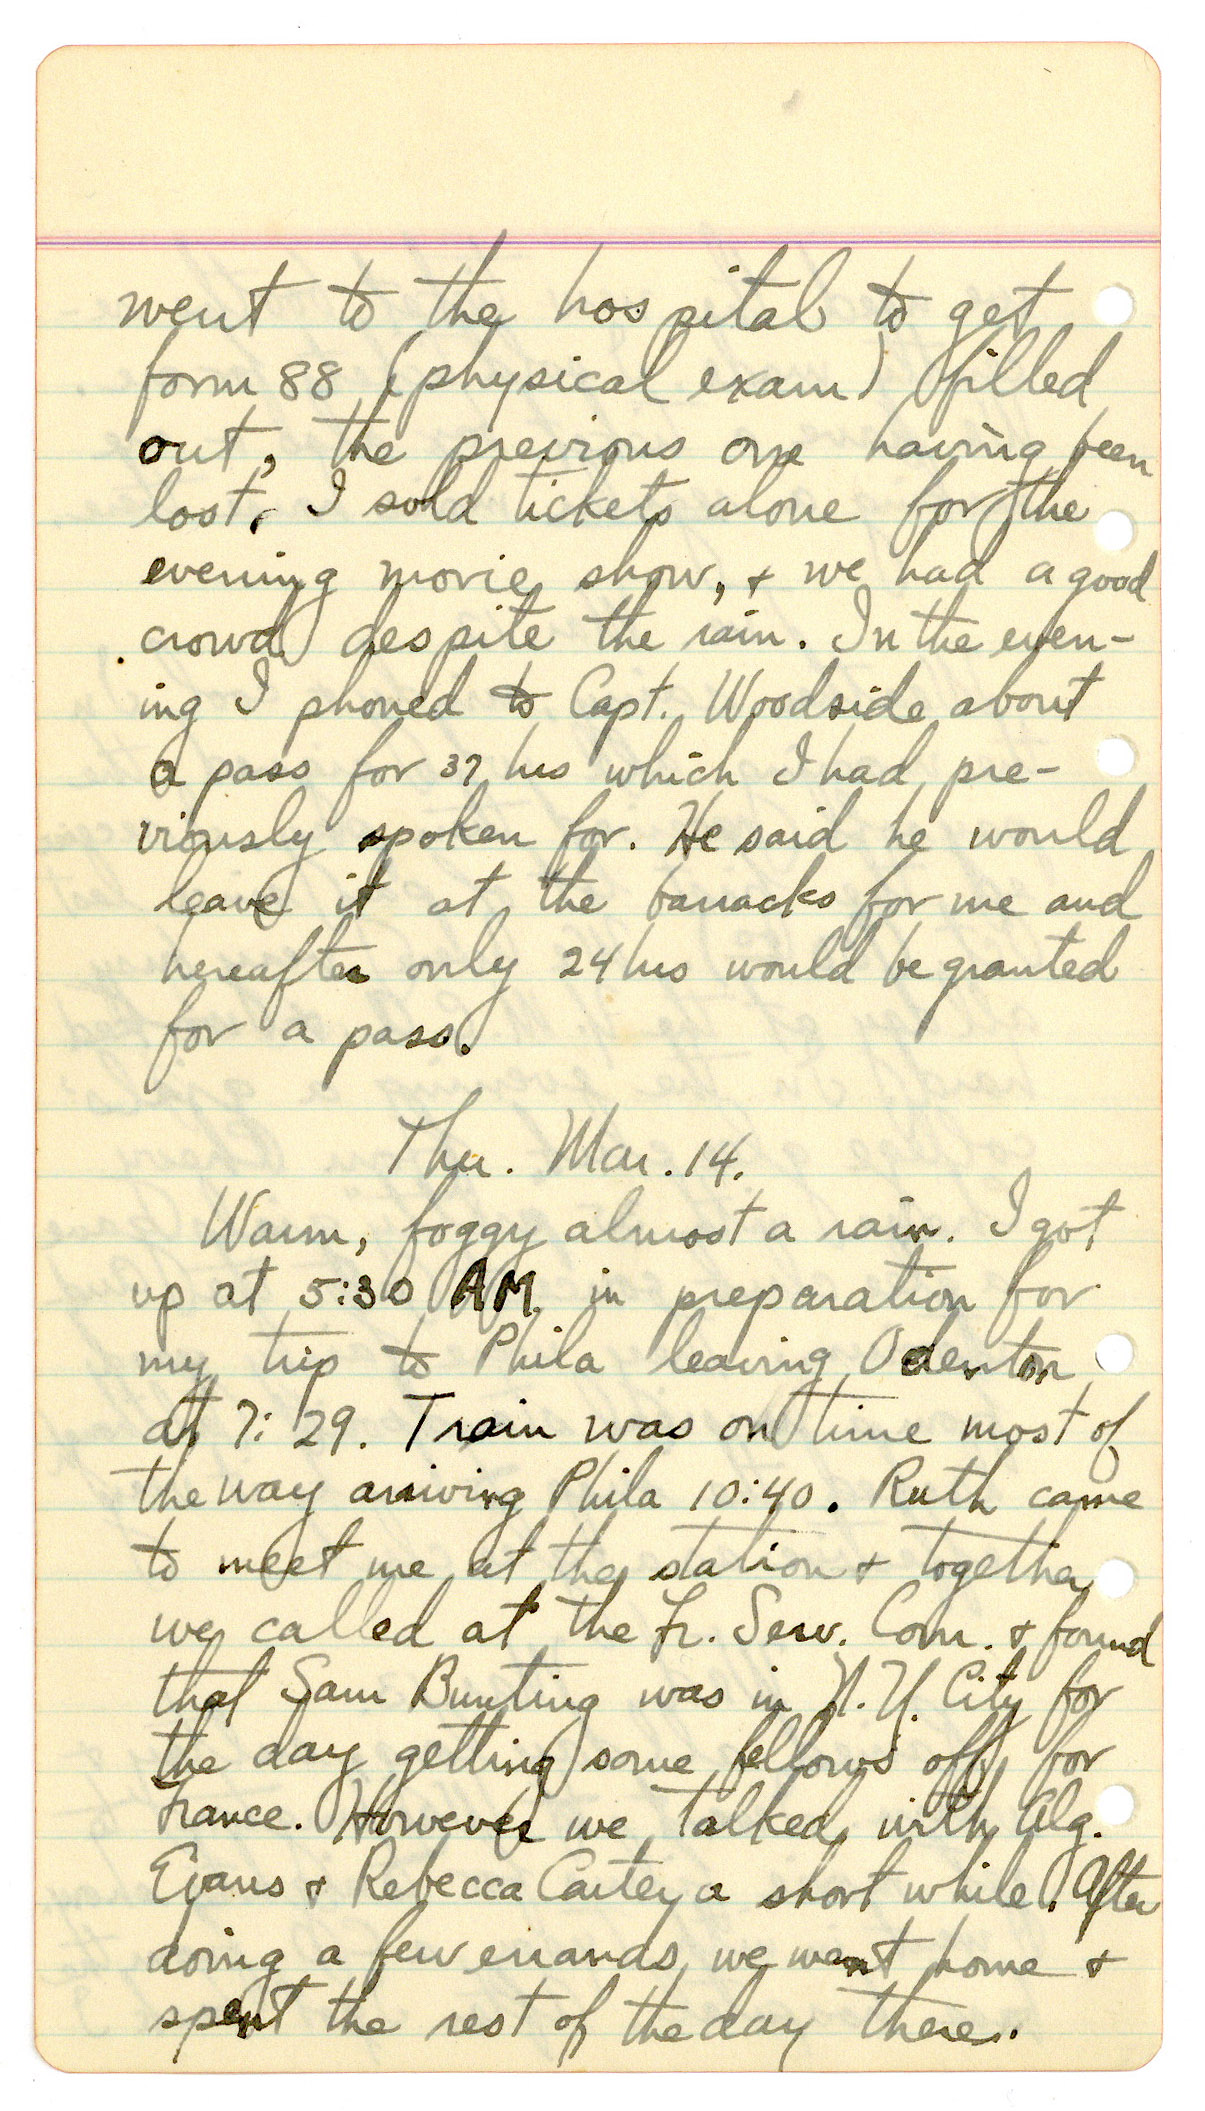 went to the hospital to get
form 88 (physical exam) filled
out, the previous one having been
lost. I sold tickets alone for the
evening movie show, + we had a good
crowd despite the rain. In the even-
ing I phoned to Capt. Woodside about
a pass for 37 hrs which I had pre-
viously spoken for. He said he would
leave it at the barracks for me and
hereafter only 24 hrs would be granted
for a pass.
Thu. Mar. 14.
Warm, foggy almost a rain. I got
up at 5:30 AM. in preparation for
my trip to Phila leaving Odenton
at 7:29. Train was on time most of
the way arriving Phila 10:40. Ruth came
to meet me at the station + together
we called at the Fr. Serv. Com. + found
that Sam Bunting was in N.Y. City for
the day getting some fellows off for
France. However we talked with Alg.
Evans + Rebecca Carter a short while. After
doing a few errands we went home +
spent the rest of the day there.